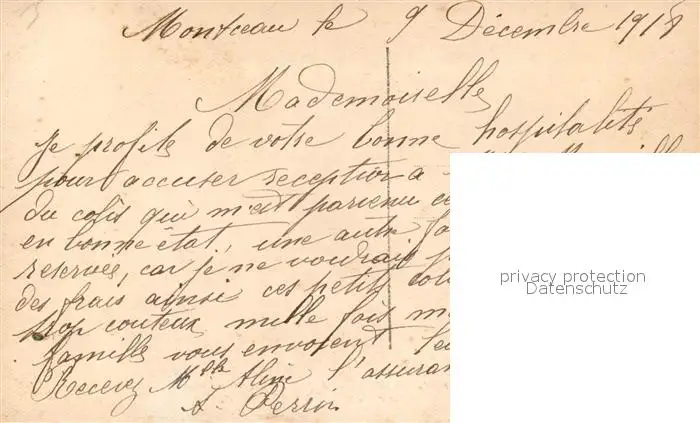 Montceau le 9 Décembre 1918
Mademoiselle
Je profite de votre bonne hospitalité
pour accuser reception a
du colis qui m'est parvenu
en bonne état, une autre
reservée, car je ne voudrais
des frais ainsi ces petits
trop couteux mille fois
famille vous envoient
Recevez Mlle Aline l'assuran
Perrin
privacy protection
Datenschutz